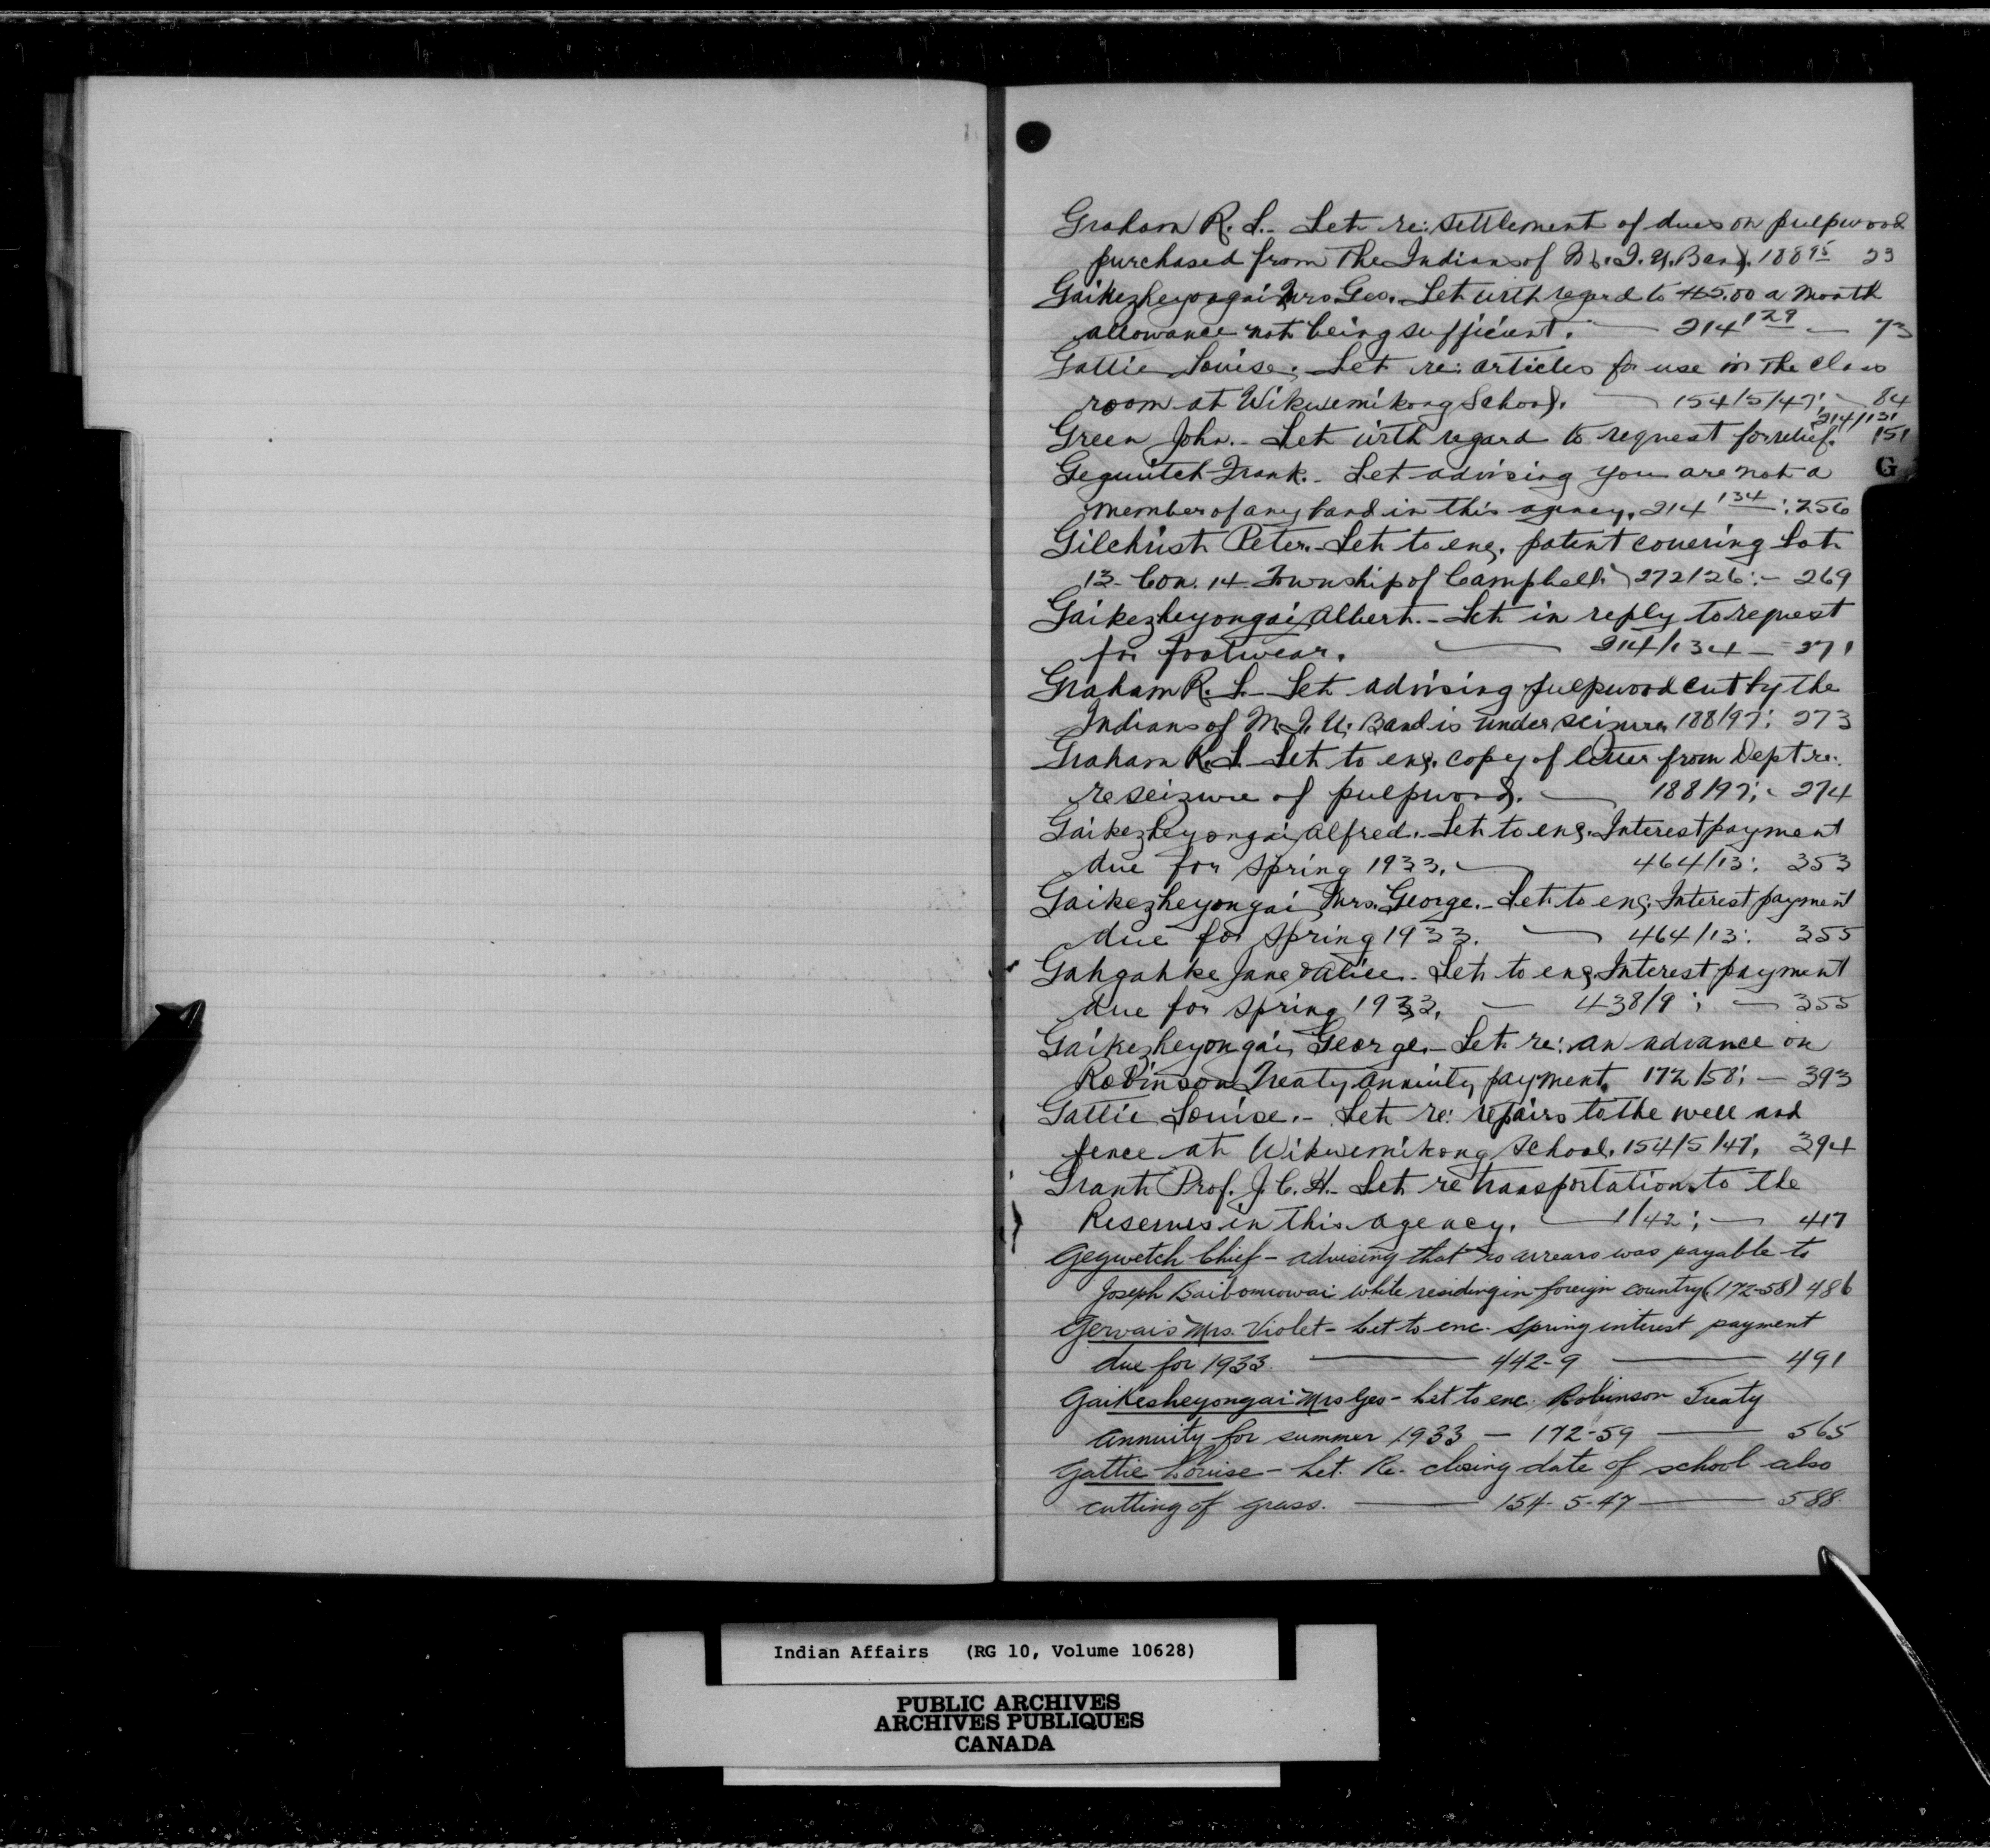 Graham R. L. - Let. re: settlement of dues on pulpwood
purchased from The Indians of M. I. U. Band. 188 95 23
Gaikezheyongai Mrs. Geo. Let. with regard to $5.00 a month
allowance not being sufficient. — 214 129 — 73
Gattie Louise. Let. re: articles for use in The class
room at Wikwemikong School. — 154/5/47; 84
214/131
Green John. - Let. with regard to request for relief. 151
G
Geguitch Frank. - Let. advising you are not a
member of any band in this agency. 214 134 : 256
Gilchrist Peter. - Let. to enc. patent covering Lot
13 - Con. 14 - Township of Campbell. 272/26: - 269
Gaikezheyongai Albert. - Let. in reply to request
for footwear. — 214/134 — 271
Graham R. L. - Let. advising pulpwood cut by the
Indians of M. I. U. Band is under seizure 188/97: 273
Graham R. L. - Let. to enc. copy of letter from Dept re:
re seizure of pulpwood. — 188/97; - 274
Gaikezheyongai Alfred. - Let. to enc. Interest payment
due for Spring 1933. — 464/13: 353
Gaikezheyongai Mrs. George. - Let. to enc. Interest payment
due for Spring 1933. — 464/13: 355
Gahgahke Jane & Alice. - Let. to enc. Interest payment
due for Spring 1933. — 438/9 ; — 355
Gaikezheyongai George. - Let. re: an advance on
Robinson Treaty annuity payment. 172/58; — 393
Gattie Louise. - Let. re: repairs to the well and
fence at Wikwemikong School. 154/5/47, 394
Grant Prof. J. C. H. - Let. re transportation to the
Reserves in this agency. — 1/42 ; — 417
Gegwetch Chief - advising that no arrears was payable to
Joseph Baibomowai while residing in foreign country (172-58) 486
Gervais Mrs. Violet - Let to enc. Spring interest payment
due for 1933. — 442-9 — 491
Gaikesheyongai Mrs Geo - Let to enc. Robinson Treaty
annuity for summer 1933 — 172-59 — 565
Gattie Louise - Let. Re. closing date of school also
cutting of grass. — 154-5-47 — 588.
Indian Affairs (RG 10, Volume 10628)
PUBLIC ARCHIVES
ARCHIVES PUBLIQUES
CANADA